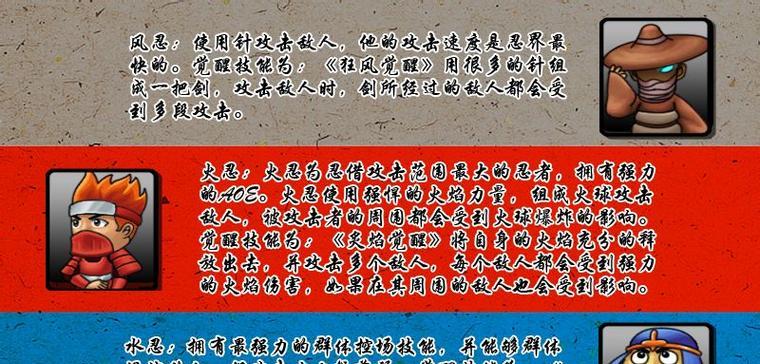 风忍：使用针攻击敌人，他的攻击速度是忍界最
快的。觉醒技能为：《狂风觉醒》用很多的针组
成一把剑，攻击敌人时，剑所经过的敌人都会受
到多段攻击。
火忍：火忍为忍借攻击范围最大的忍者，拥有强力
的AOE。火忍使用强悍的火焰力量，组成火球攻击
敌人，被攻击者的周围都会受到火球爆炸的影响。
觉醒技能为：《炙焰觉醒》将自身的火焰充分的释
放出去，并攻击多个敌人，每个敌人都会受到强力
的火焰伤害，如果在其周围的敌人也会受到影响。
水忍：拥有最强力的群体控场技能，并能够群体